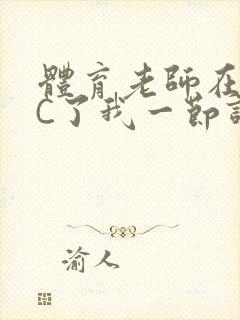 體育老師在
C了我一節
渝人